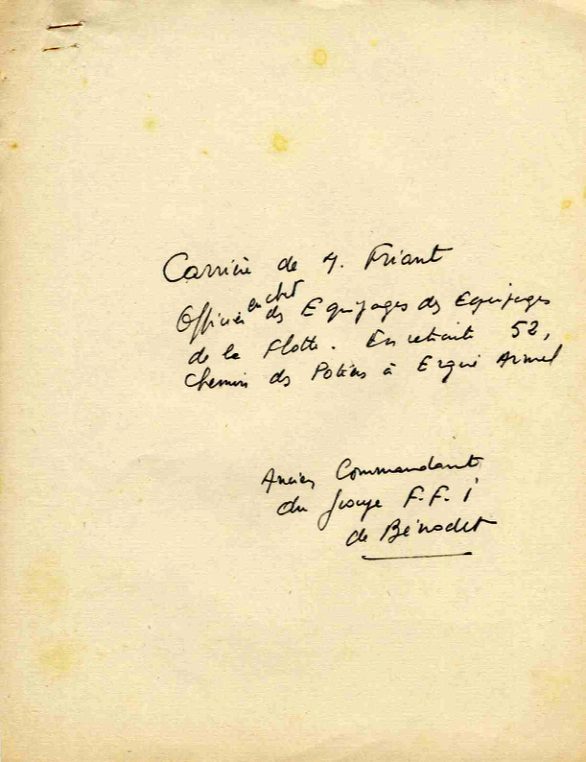 Carrière de M. Friant
Officier en chef des Equipages des Equipages
de la Flotte. En retraite 52,
Chemin des Potiers à Ergué Armel
Ancien Commandant
du Groupe F.F.I
de Bénodet